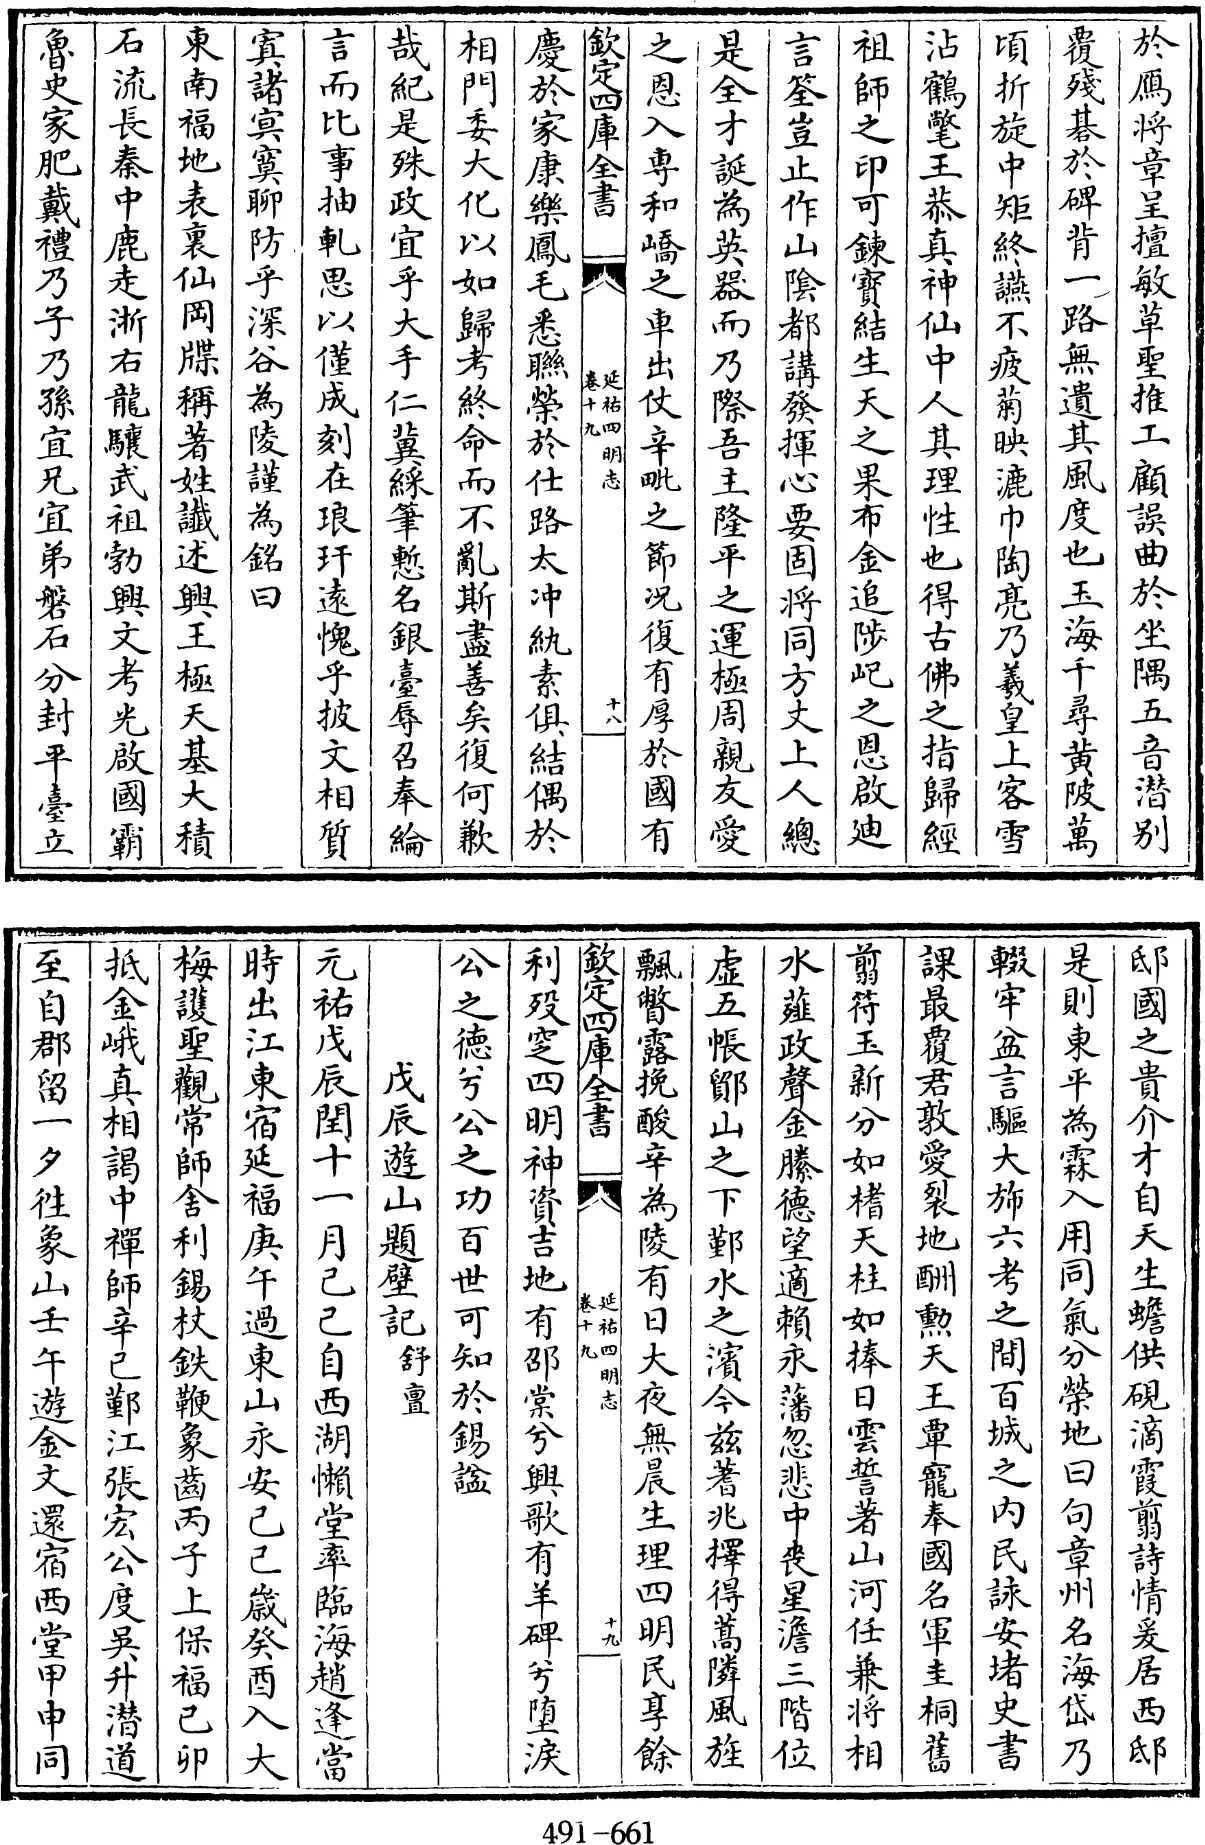 於鴈將章呈擅敏草聖推工顧誤曲於坐隅五音潛别
覆殘碁於碑背一路無遺其風度也玉海千尋黄陂萬
頃折旋中矩終讌不疲菊映漉巾陶亮乃羲皇上客雪
沾鶴氅王恭真神仙中人其理性也得古佛之指歸經
祖師之印可鍊寳結生天之果布金追陟屺之恩啟廸
言筌豈止作山陰都講發揮心要固將同方丈上人總
是全才誕為英器而乃際吾主隆平之運極周親友愛
之恩入專和嶠之車出仗辛毗之節况復有厚於國有
欽定四庫全書
延祐四明志
卷十九
十八
慶於家康樂鳳毛悉聯榮於仕路太冲紈素俱結偶於
相門委大化以如歸考終命而不亂斯盡善矣復何歉
哉紀是殊政宜乎大手仁冀綵筆慙名銀臺辱召奉綸
言而比事抽軋思以僅成刻在琅玕遠愧乎披文相質
寘諸寘寞聊防乎深谷為陵謹為銘曰
東南福地表裏仙岡牒稱著姓讖述興王極天基大積
石流長秦中鹿走浙右龍驤武祖勃興文考光啟國霸
魯史家肥戴禮乃子乃孫宜兄宜弟磐石分封平臺立
邸國之貴介才自天生蟾供硯滴霞翦詩情爰居西邸
是則東平為霖入用同氣分榮地曰句章州名海岱乃
輟牢盆言驅大斾六考之間百城之内民詠安堵史書
課最覆君敦愛裂地酬勲天王覃寵奉國名軍圭桐舊
翦符玉新分如榰天柱如捧日雲誓著山河任兼將相
水薤政聲金縢德望適賴永藩忽悲中喪星澹三階位
虚五帳鄮山之下鄞水之濱今兹蓍兆擇得蒿隣風旌
飄瞥露挽酸辛為陵有日大夜無晨生理四明民享餘
欽定四庫全書
延祐四明志
卷十九
十九
利歿窆四明神資吉地有邵棠兮興歌有羊碑兮墮淚
公之德兮公之功百世可知於錫諡
戊辰遊山題壁記 舒亶
元祐戊辰閏十一月己巳自西湖懶堂率臨海趙逢當
時出江東宿延福庚午過東山永安己巳歳癸酉入大
梅護聖觀常師舍利錫杖鉄鞭象齒丙子上保福己卯
抵金峨真相謁中禪師辛巳鄞江張宏公度吳升潛道
至自郡留一夕徃象山壬午遊金文還宿西堂甲申同
491-661